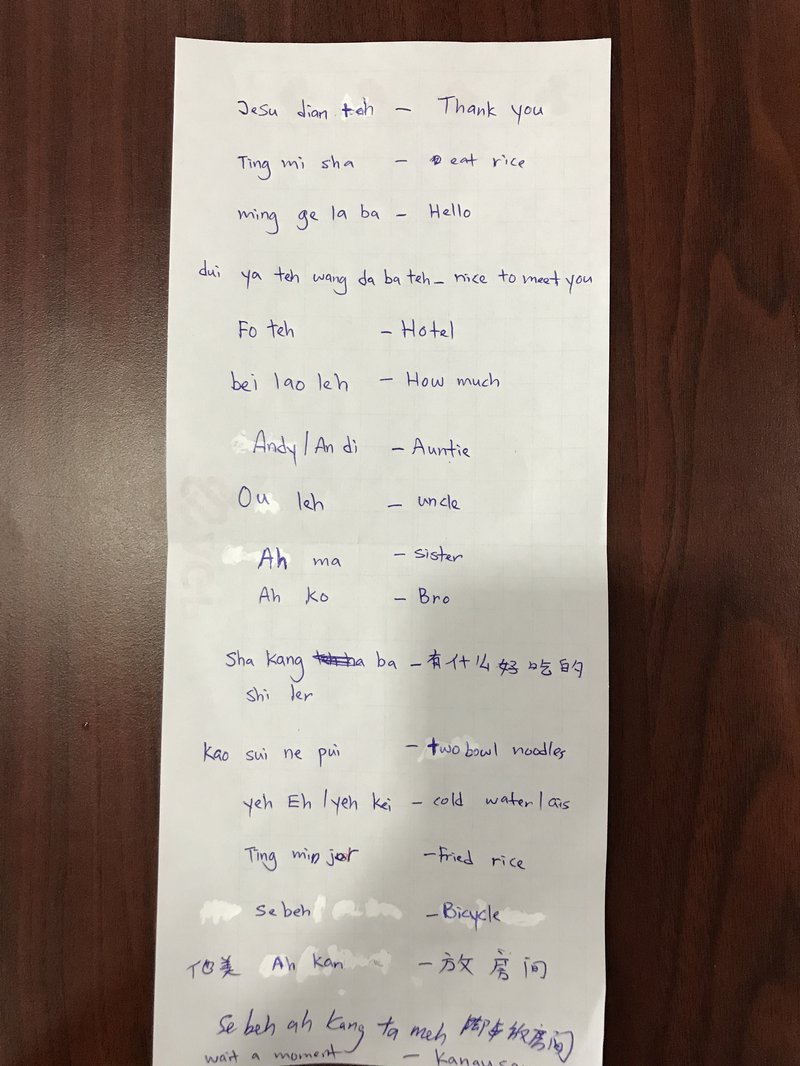 Jesu dian teh – Thank you
Ting mi sha – eat rice
ming ge la ba – Hello
dui ya teh wang da ba teh – nice to meet you
Fo teh – Hotel
bei lao leh – How much
Andy/An di – Auntie
Ou leh – uncle
Ah ma – sister
Ah ko – Bro
Sha kang ba – 有什么好吃的
shi ler
Kao sui ne pui – two bowl noodles
yeh Eh/yeh kei – cold water/ais
Ting min jor – Fried rice
Se beh – Bicycle
他美 Ah kan – 放房间
Se beh ah kang ta meh 脚车放房间
wait a moment –